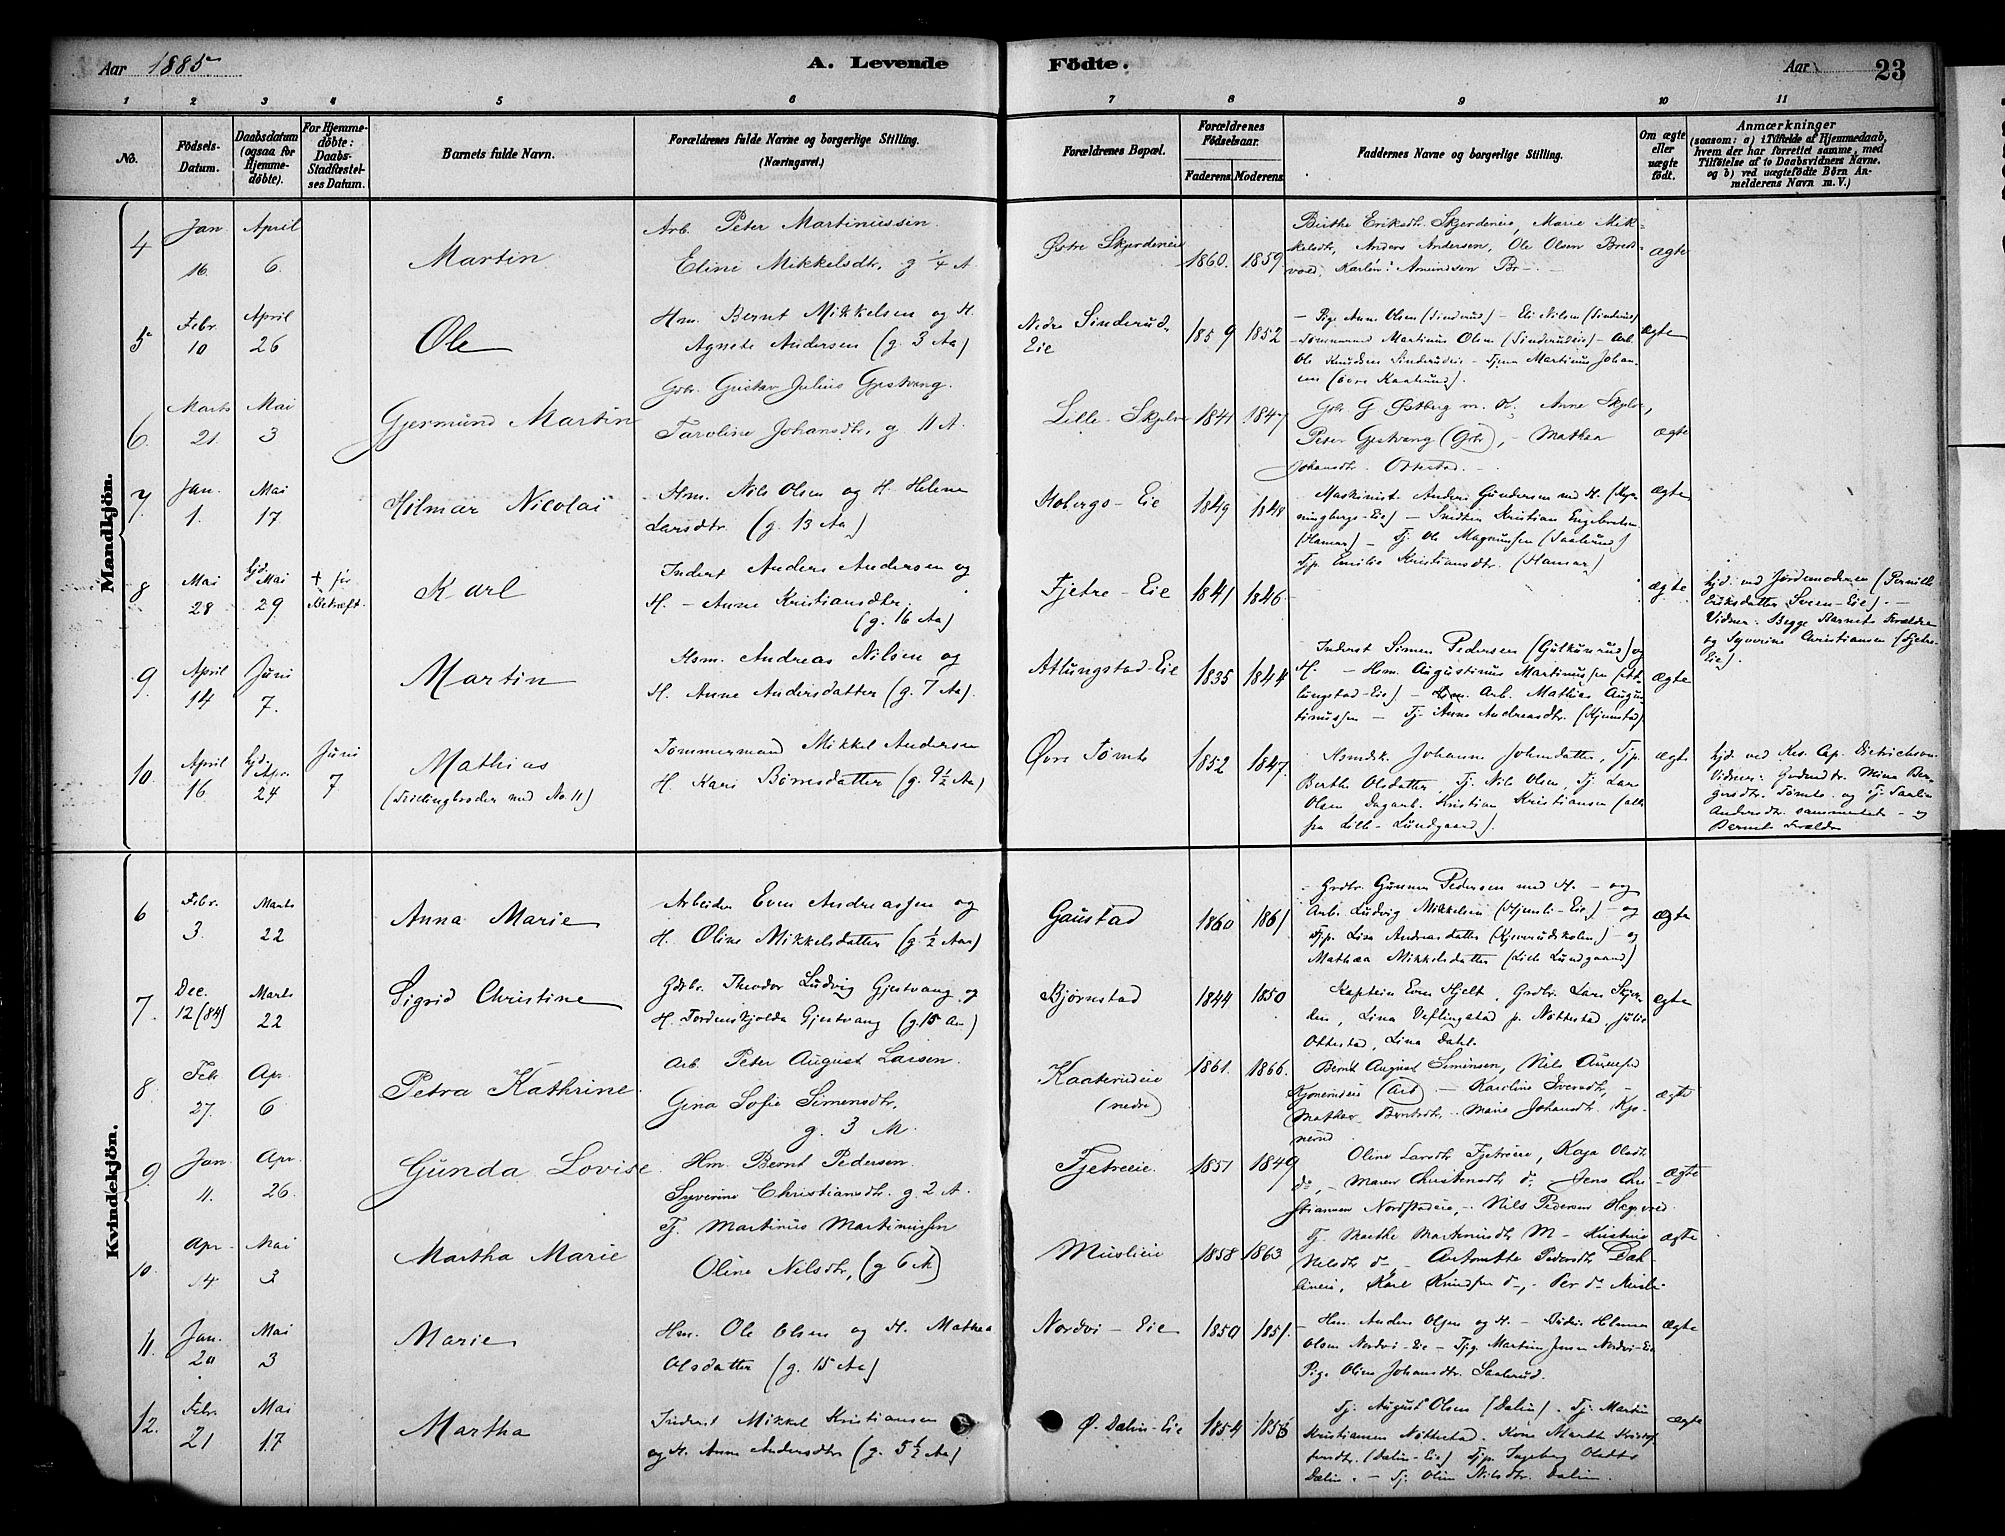 Aar 1885
A. Levende
Födte.
Aar
23
1 2 3 4 5 6 7 8 9 10 11
No.
Födsels-
Datum.
Daabsdatum
(ogsaa for
Hjemme-
döbte).
For Hjemme-
döbte:
Daabs-
Stadfæstel-
ses Datum.
Barnets fulde Navn.
Forældrenes fulde Navne og borgerlige Stilling.
(Næringsvei.)
Forældrenes Bopæl.
Forældrenes
Födselsaar.
Faderens. Moderens.
Faddernes Navne og borgerlige Stilling.
Om ægte
eller
uægte
födt.
Anmærkninger
(saasom: a) i Tilfælde af Hjemmedaab,
hvem der har forrettet samme, med
Tilföielse af to Daabsvidners Navne.
og b) ved uægtefödte Börn An-
melderens Navn m. V.)
Mandkjön.
4 Jan 16. April 6. Martin
Arb. Peter Martinussen
Eline Mikkelsdtr. g 1/4 A
Østre Skjerdeneie 1860. 1859
Birthe Eriksdtr Skjerdeneie, Marie Mik-
kelsdtr, Anders Andersen, Ole Olsen Bred-
vold, Amundsen
ægte
5 Febr 10 April 26 Ole
Hm. Bernt Mikkelsen og H.
Agnete Andersen (g. 3 Aa)
Nedre Sinderud-
Eie 1859 1852
Pige Anne Olsen (Sinderud) - Eli Nilsen (Sinderud)
Tømmermand Martinus Olsen (Sinderudeie) - Arb.
Ole Knudsen Sinderudeie - Tjener Martinus Johan-
sen (øvre Kaatrud).
ægte
6. Marts 21. Mai 3 Gjermund Martin
Gbr. Gustav Julius Gjestvang.
Taroline Johansdtr, g 11 A.
Lille-Skjelve 1841 1847
Gbr. G Østberg m. K, Anne Skjelve,
Peter Gjestvang (Gbr), - Mathea
Johansdtr. Ottestad. -
ægte
7 Jan. 1. Mai 17 Hilmar Nicolai
Hsm. Nils Olsen og H. Helene
Larsdtr. (g. 13 Aa)
Stobergs-Eie 1849 1848
Maskinist Anders Gundersen med H.
Snedker Kristian Engebretsen
(Hamar) - Tj. Ole Magnussen (Saalerud)
Tjp. Emilie Kristiansdtr. (Hamar)
ægte
8 Mai 28 hjd. Mai 29 + før
Bekræft. Karl
Inderst Anders Andersen og
H. - Anne Kristiansdtr.
(g. 16 Aa)
Fjetre-Eie 1841 1846
ægte
hjd. ved Jordemoderen (Pernille
Eriksdatter Sveen-Eie). -
Vidner: Begge Barnets Forældre
og Syverine Christiansen (Fjetre-
Eie).
9. April 14 Juni 7. Martin
Hsm. Andreas Nilsen og
H. Anne Andersdatter (g. 7 Aa)
Atlungstad-Eie 1835 1844
Inderst Simen Pedersen (Gulkunrud) og
H. - Hsm Augustinus Martinussen (At-
lungstad-Eie) - Arb. Mathias Augus-
tinussen - Tj. Anne Andreasdtr. (Hjemstad)
ægte
10. April 16 hjd. Apr. 24 Juni 7 Mathias
(Tvillingbroder med No 11)
Tømmermand Mikkel Andersen
H. Kari Børresdatter (g. 9 1/2 Aa)
Øvre Tømte 1852 1847.
Johanne Johnsdatter, Tjp.
Berthe Olsdatter, Tj. Nils Olsen, Tj. Lars
Olsen Dagarb. Kristian Kristiansen (alle
fra Lille-Lundgaard).
ægte
hjd. ved Res. Cap. Dietrichson
Vidner: Mina Ber-
gersdtr. Tømte. og Tj.
Andersdtr. sammesteds - og
Barnets Forældre
Kvindekjön.
6 Febr. 3. Marts 22 Anna Marie
Arbeider Even Andreassen og
H. Oline Mikkelsdatter (g. 1/2 Aar)
Gaustad 1860 1861
Grdbr. Gunner Pedersen med H. - og
Arb. Ludvig Mikkelsen (Hjemli-Eie) - og
Tjp. Lina Andreasdatter (Kjeverudskolen) - og
Mathea Mikkelsdatter (Lille Lundgaard)
ægte
7. Dec. 12 (84) Marts 22 Sigrid Christine
Gdbr. Theodor Ludvig Gjestvang og
H. Tordenskjolda Gjestvang (g. 15 Aa)
Bjørnstad 1844 1850
Kaptein Even Hjelt, Grdbr. Lars Skjer-
den, Lina Veflingstad p. Nøttestad, Julie
Ottestad, Lina Dahl.
ægte
8. Febr 27. Apr. 6 Petra Kathrine.
Arb. Peter August Larsen.
Gina Sofie Simensdtr,
g. 3 M.
Kaaterudeie
(nedre) 1861. 1866.
Bernt August Simensen, Nils Augustsen
(Arb) - Karoline Iversdtr, -
Mathea Berntsdtr, - Marie Johansdtr. Kjo-
nerud
ægte
9 Jan. 11. Apr. 26. Gunda Lovise.
Hm. Bernt Pedersen.
Syverine Christiansdtr. g. 2 A.
Fjetreeie. 1851 1849
Oline Larsdtr Fjetreeie, Kaja Olsdtr
do, - Maren Christensdtr do, Jens Chri-
stiansen Nordstadeie, - Nils Pedersen
ægte
10. Apr. 14 Mai 3 Martha Marie
Tj. Martinus Martinussen
Oline Nilsdtr, (g 6 A)
Muslieie 1858 1863
Tj. Marthe Martinusdtr M - Kristine
Nilsdtr do, - Antonette Pedersdtr Dah-
lineie, Karl Knudsen do -, Per do Musli-
ægte
11. Jan. 20 Mai 3 Marie
Hm. Ole Olsen og H. Mathea
Olsdatter (g. 15 Aa)
Nordvi-Eie 1850 1851.
Hm. Anders Olsen og H. - Helene
Olsen Nordvi-Eie - Tjg. Martin Jensen Nordvi-Eie
Pige Oline Johansdtr. Saalerud.
ægte
12. Febr. 21 Mai 17 Martha
Inderst Mikkel Kristiansen
og H. Anne Andersdtr (g. 5 1/2 Aa)
Ø. Dalin-Eie 1854 1856
Tj. August Olsen (Dalin). Tj. Martin
Kristiansen Nøttestad. Kone Marthe Kristof-
fersdtr. (Dalin-Eie) Tjp. Ingeborg Olsdtr
Dalin. - Tj. Olin Nilsdtr. Dalin.
ægte